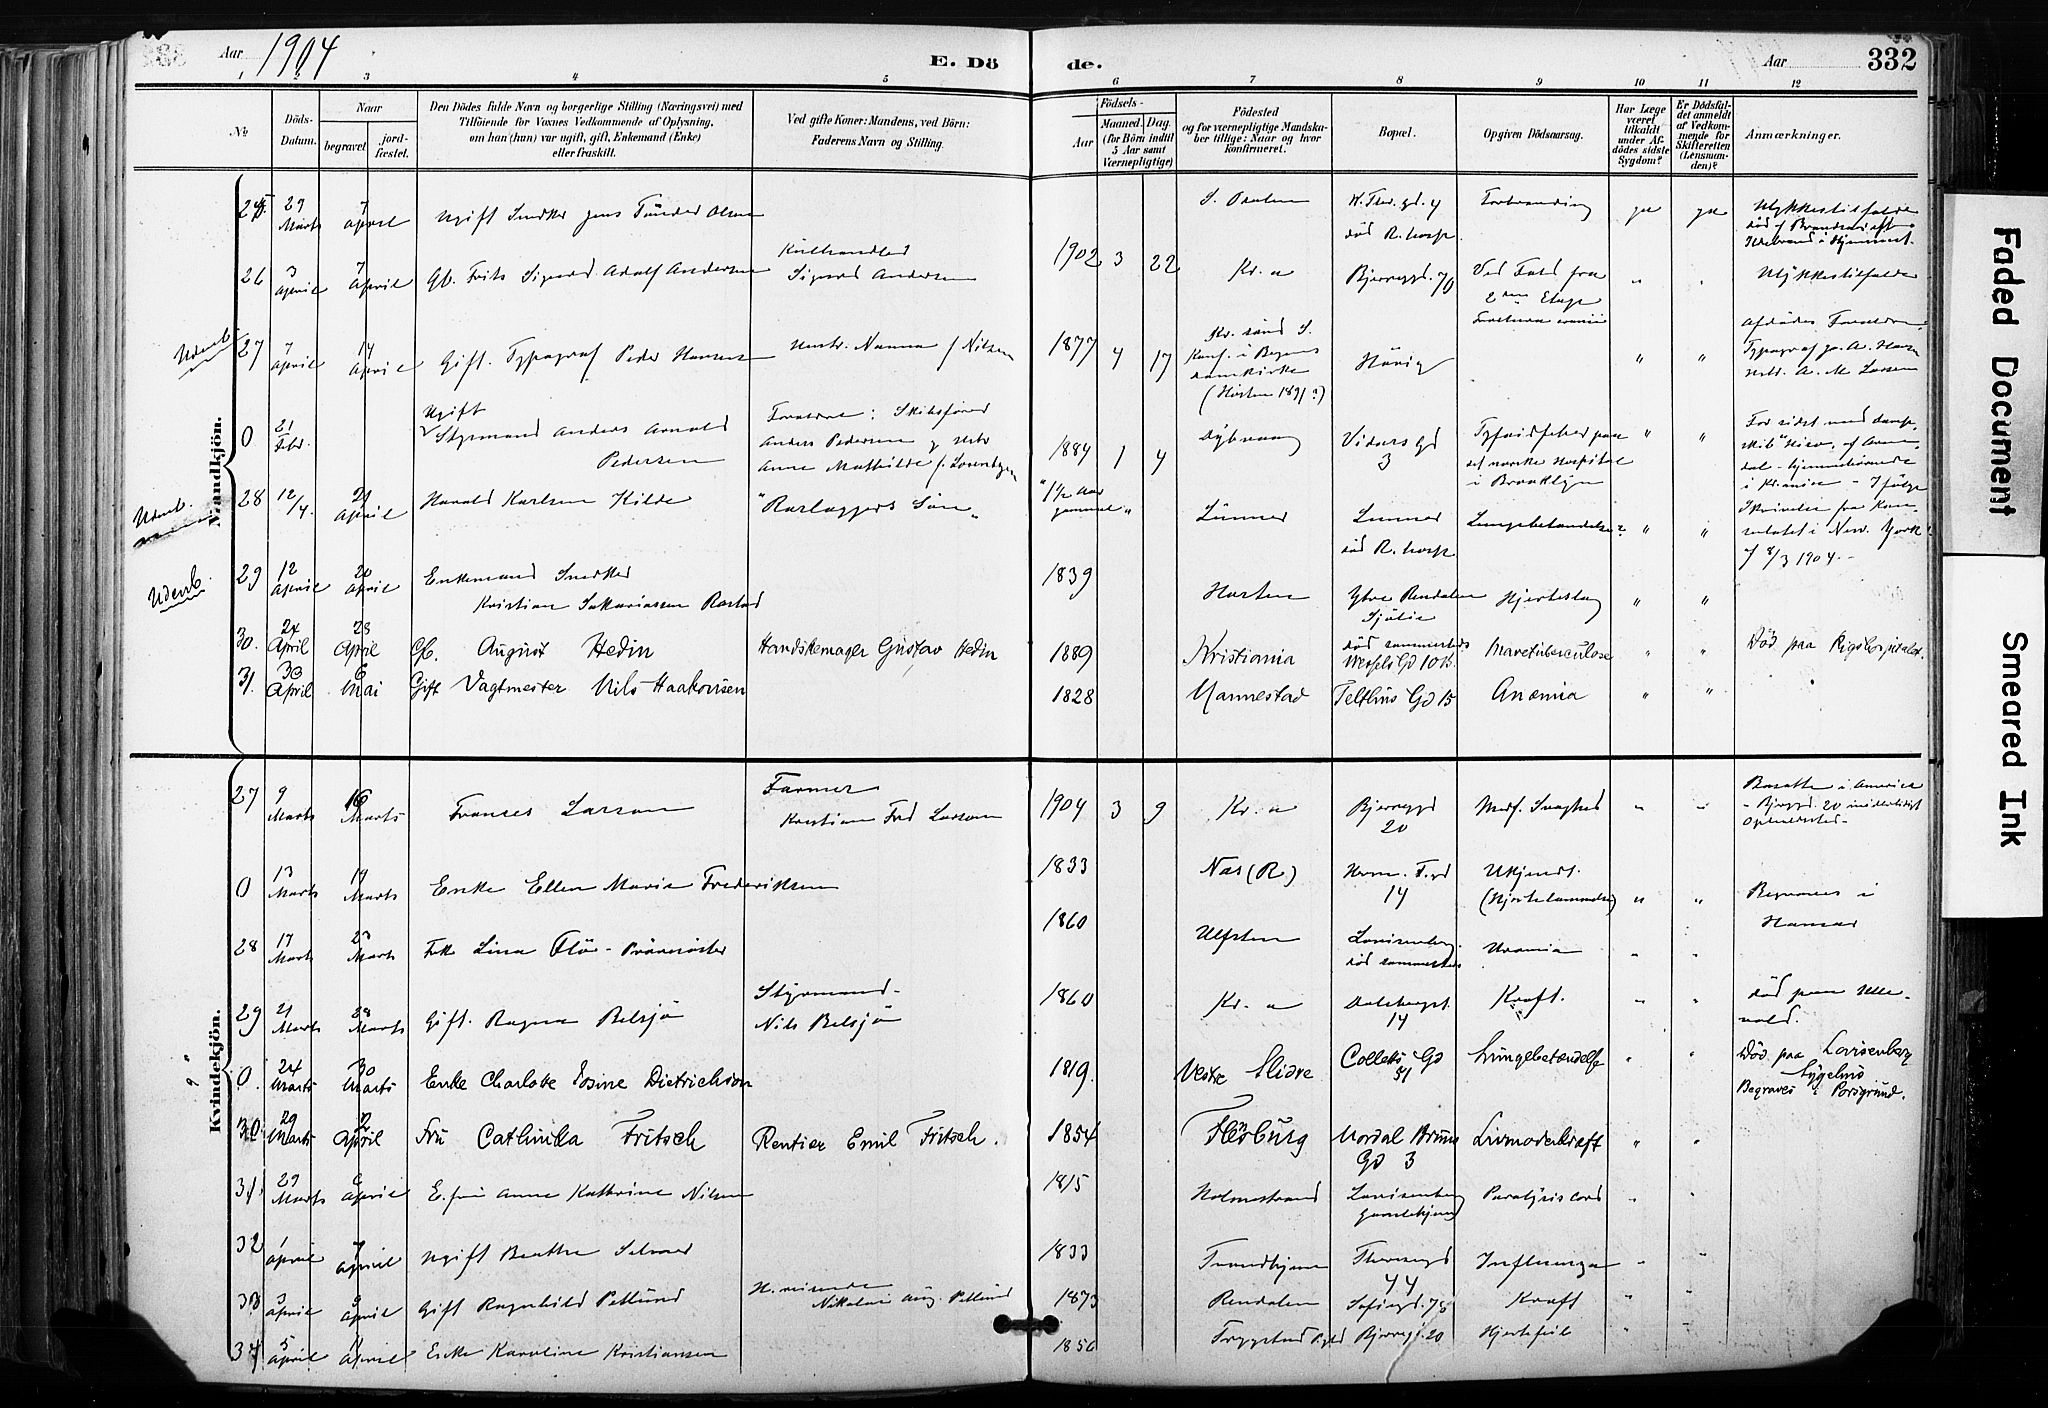 Aar 1904
E. Dö
de.
Aar
332
1 2 3 4 5 6 7 8 9 10 11 12
No
Döds-
Datum.
Naar
begravet
jord-
fæstet.
Den Dödes fulde Navn og borgerlige Stilling (Næringsvei) med
Tilföiende for Voxnes Vedkommende af Oplysning,
om han (hun) var ugift, gift, Enkemand (Enke)
eller fraskilt.
Ved gifte Koner: Mandens, ved Börn:
Faderens Navn og Stilling.
Födsels-
Aar
Maaned. Dag.
(for Börn indtil
5 Aar samt
Værnepligtige)
Födested
og for værnepligtige Mandska-
ber tillige: Naar og hvor
konfirmeret.
Bopæl.
Opgiven Dödsaarsag.
Har Læge
været
tilkaldt
under Af-
dödes sidste
Sygdom?
Er Dödsfal-
det anmeldt
af Vedkom-
mende for
Skifteretten
(Lensman-
den)?
Anmærkninger.
Mandkjön.
29 Marts 7 April Ugift Snedker Jens Olsen
død R. hosp. Forbrænding ja ja Ulykkestilfælde
26 3 April 7 April Gb. Frits Sigurd Adolf Andersen
Kulhandler
Sigurd Andersen
1902 3 22 Kr. a Bjerregd. 70 Ved Fald fra
2den Etage
" " Ulykkestilfælde
Udenb.
27 7 April 14 April Gift. Typograf Peder Hansen
Hustr. Nanna f. Nilsen
1877 4 17
Kr. sand S.
Konf. i Bergens
Domkirke
(Høsten 1891?)
Hövig " "
Afdødes Forældre
Typograf
A. M. Larsen
0 21 Febr.
Ugift
Styrmand Anders Arnold
Pedersen
Forældre: Skibsfører
Anders Pedersen og Hustr.
Anne Mathilde f.
1884 1 4 Dybvaag Vidars Gd
3
Tyfoidfeber paa
det norske Hospital
i Brooklyn
" "
For sidst med Damp-
skib
hjemmehørende
i Kr.ania - Ifølge
Skrivelse fra Kon-
sulatet i New York
af 8/3 1904.
Udenb.
28 12/4. 21 April Harald Karlsen Hilde
" Rørlæggers Søn "
" 1 1/2 Aar
gammel "
Lunner Lunner
død R. hosp.
Lungebetændelse? " "
Udenb.
29 12 April 20 April Enkemand Snedker
Kristian Sakariassen Rastad
1839 Horten Ytre Rendalen
Sjölie
Hjerteslag " "
30. 24 April 28 April Gb. August Hedin Handskemager Gustav Hedin
1889 Kristiania død sammesteds
Wessels Gd 10B. Mavetuberculose " " Död paa Rigshospitalet.
31. 30 April 6 Mai Gift Vagtmester Nils Haakonsen
1828 Mannestad Telthus Gd 15 Anæmia " "
Kvindekjön.
27 9 Marts 16 Marts Frances Larson
Farmer
Kristian Fred Larson
1904 3 9 Kr. a Bjerregd
20
Medf. Svaghed " "
Bosatte i Amerika
- Bjerregd. 20 midlertidigt
Opholdssted -
0 13 Marts 19 Marts Enke Ellen Marie Frederiksen
1833 Næs (R) 14
Ukjendt.
(Hjertelammelse) " "
Begraves i
Hamar
28 17 Marts 23 Marts Frk Lina Flör - Prøvesøster
1860 Ulfsten Lovisenberg
død sammesteds
Uræmia " "
29 21 Marts 28 Marts Gift. Ragna Belsjö
Styrmand
Nils Belsjö
1860 Kr. a Dalsbergst.
14
Kræft. " "
død paa Ulle-
vold.
0. 24 Marts 30 Marts Enke Charlotte Eosine Dietrichson
1819. Vestre Slidre Colletts Gd
51
Lungebetændelse " "
Död paa Lovisenberg
Sygehus
Begraves i Porsgrund.
30 29 Marts 2 April Fru Cathinka Fritsch Rentier Emil Fritsch.
1854 Flesburg Nordal Bruns
Gd 3
Livmoderkræft " "
31. 29 Marts 6 April E.fru Anne Kathrine Nilsen
1815 Holmestrand Lovisenberg
Gamlehjem
Paralysis cord " "
32 1 April 7 April Ugift Beathe Selmer
1833 Trondhjem Theresegd
44
Influenza " "
33 3 April 9 April Gift Ragnhild Petlund
H.reisende
Nikolai Aug. Petlund
1873 Rendalen Sofiegd. 78 Kræft " "
34 5 April 11 April Enke Karoline Kristiansen
1850 Trygstad Bjerregd. 20 Hjertefeil " "
Faded Document
Smeared Ink